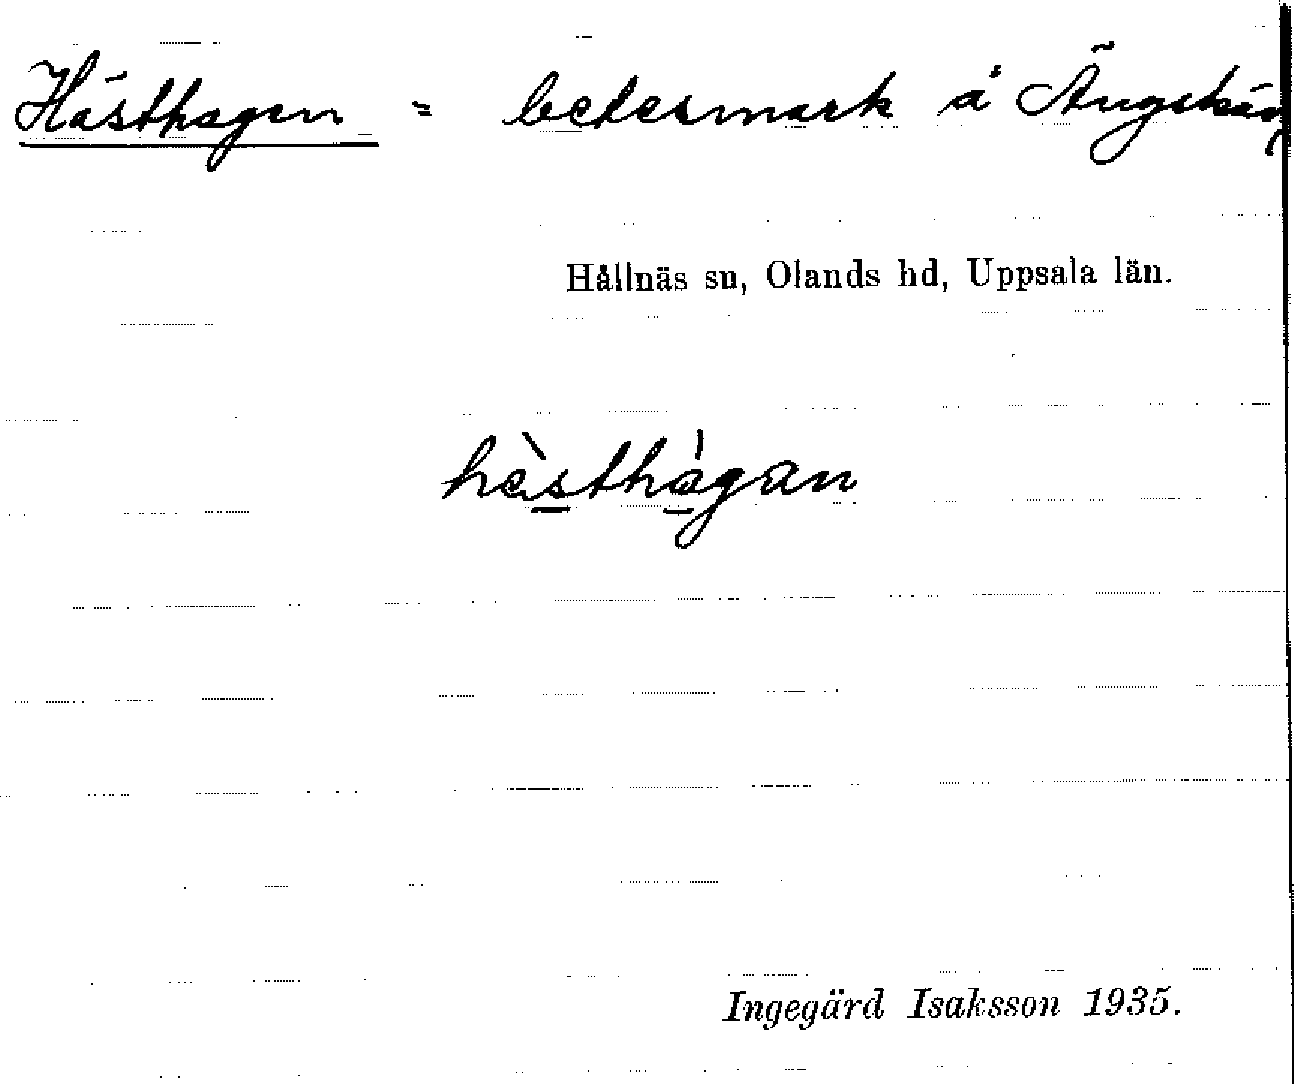 Hästhagen = betesmark å Ängskär
Hållnäs sn, Olands hd, Uppsala län.
hèsthàgan
Ingegärd Isaksson 1935.